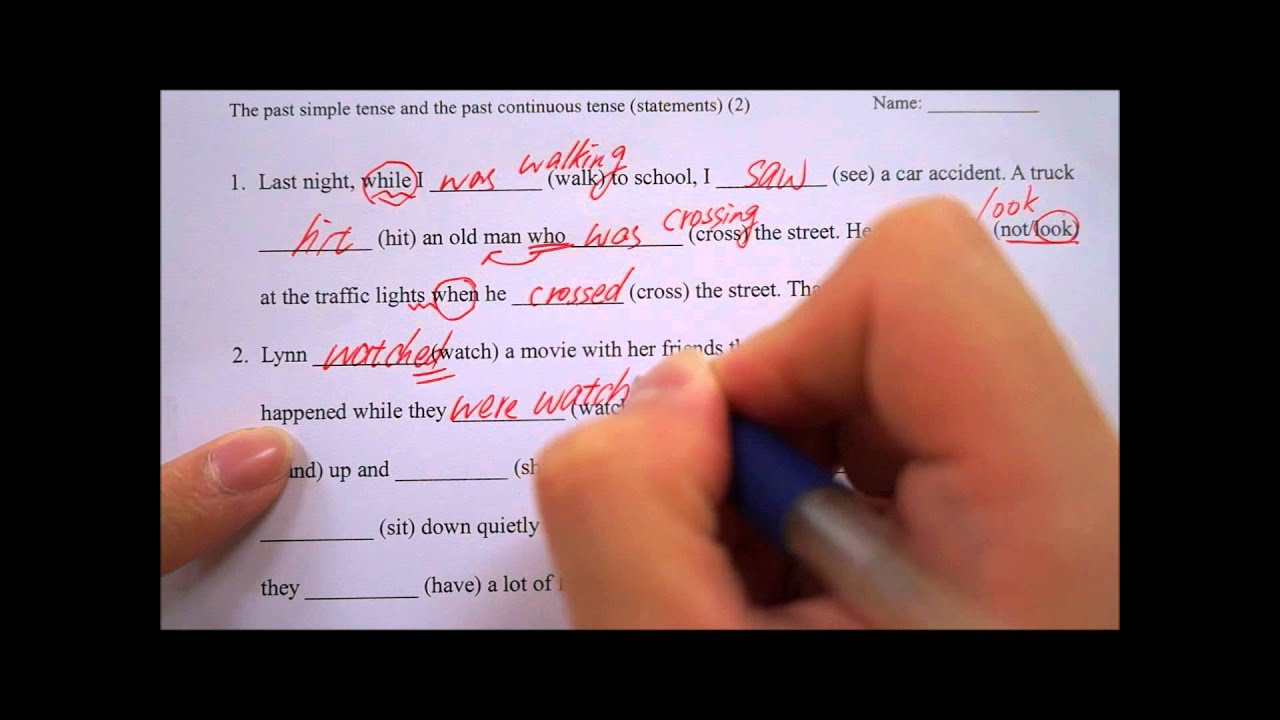 The past simple tense and the past continuous tense (statements) (2) Name: ____________
1. Last night, while I was walking (walk) to school, I saw (see) a car accident. A truck
hit (hit) an old man who was crossing (cross) the street. He look (not/look)
at the traffic lights when he crossed (cross) the street.
2. Lynn watched (watch) a movie with her friends
happened while they were watch
up and ____________
____________ (sit) down quietly
they ____________ (have) a lot of